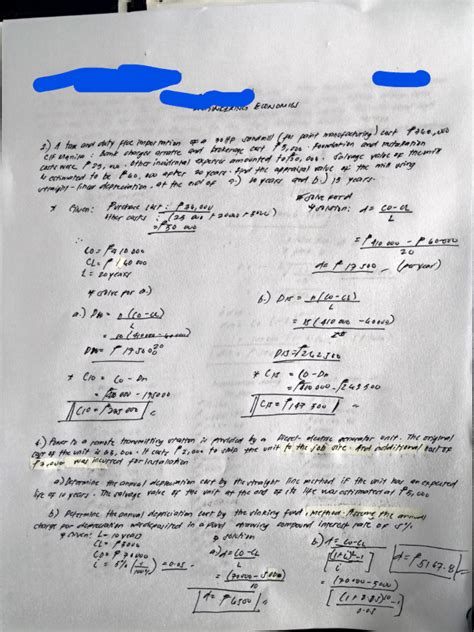 ENGINEERING ECONOMICS
2.) A tax and duty free importation of a 30 HP sandmill (for paint manufacturing) cost ₱360,000
CIF Manila. Bank charges arrastre and brokerage cost ₱5,000. Foundation and installation
costs were ₱25,000. Other incidental expenses amounted to 20,000. Salvage value of the mill
is estimated to be ₱60,000 after 20 years. Find the appraisal value of the mill using
straight-line depreciation at the end of a.) 10 years and b.) 15 years.
* Given: Purchase cost:
other costs: (25 000 + 20000 + 5000)
= ₱50 000
* solve for d
* solution: d = Co-CL
L
= ₱410 000 - ₱60 000
20
d = ₱17 500 (per year)
Co = ₱410000
CL = ₱60 000
L = 20 years
* solve for a.)
a.) D10 = n(Co-CL)
L
20
D10 =
* C10 = Co-Dn
C10 =
b.) D15 = n(Co-CL)
L
= 15(410 000 - 60000)
20
D15 = ₱262 500
* C15 = Co-Dn
C15 = ₱147 500
6.) Power to a remote transmitting station is provided by a Diesel-electric generator unit. The original
cost of the unit is 65,000. It costs ₱2,000 to ship the unit to the job site. And additional cost of
₱3,000 was incurred for installation
a) Determine the annual depreciation cost by the straight line method if the unit has an expected
life of 10 years. The salvage value of the unit at the end of its life was estimated at ₱5,000
b) Determine the annual depreciation cost by the sinking fund method. Assume the annual
charge for depreciation was deposited in a fund drawing compound interest rate of 5%
* given: L = 10 years
CL = ₱5000
Co = ₱70000
i = 5% = 0.05
* solution
a) d = Co-CL
L
= (70000-5000)
10
d = ₱6500
b.) d = Co-CL
(1+i)ᴸ-1
i
= (70000-5000)
(1+0.05)¹⁰-1
0.05
d = ₱5167.8